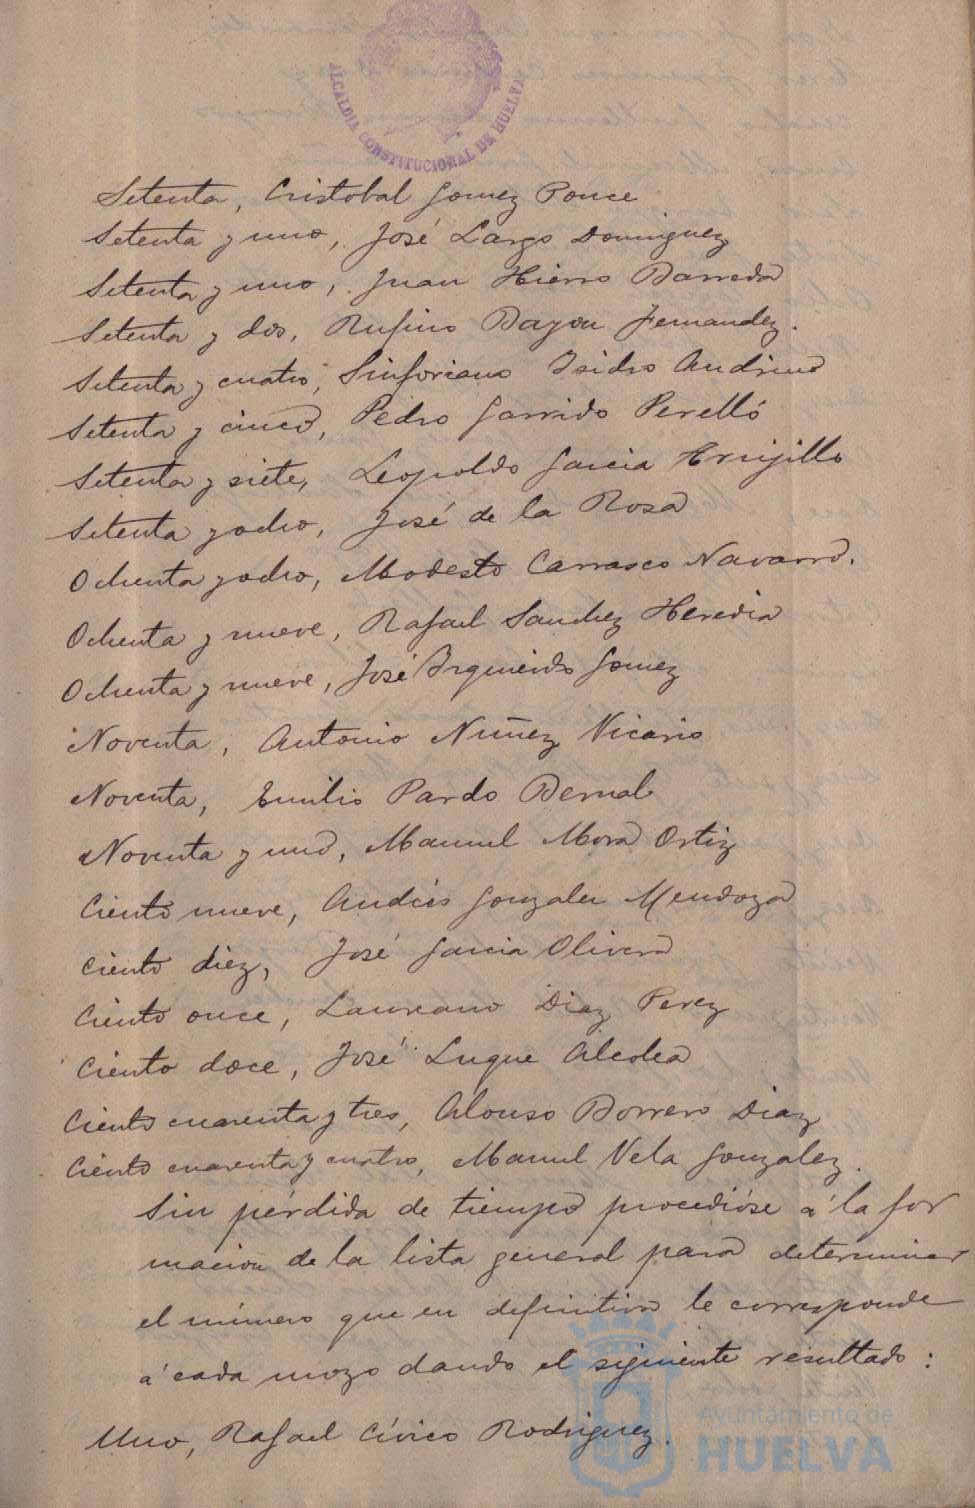 ALCALDIA CONSTITUCIONAL DE HUELVA
Setenta, Cristobal Gomez Ponce
Setenta y uno, José Largo Dominguez
Setenta y uno, Juan Hierro Barreda
Setenta y dos, Rufino Bayon Fernandez.
Setenta y cuatro, Sinforiano Isidro
Setenta y cinco, Pedro Garrido Perelló
Setenta y siete, Leopoldo Garcia Trujillo
Setenta y ocho, José de la Rosa
Ochenta y ocho, Modesto Carrasco Navarro.
Ochenta y nueve, Rafael Sanchez Heredia
Ochenta y nueve, José Izquierdo Gomez
Noventa, Antonio Nuñez Vicario
Noventa, Emilio Pardo Bernal
Noventa y uno, Manuel Mora Ortiz
Ciento nueve, Andrés Gonzalez Mendoza
Ciento diez, José Garcia Olivera
Ciento once, Laureano Diaz Perez
Ciento doce, José Luque Alcolea
Ciento cuarenta y tres, Alonso Borrero Diaz
Ciento cuarenta y cuatro, Manuel Vela Gonzalez.
Sin pérdida de tiempo procedióse á la for
macion de la lista general para determinar
el número que en definitiva le corresponde
á cada mozo dando el siguiente resultado:
Uno, Rafael Cívico Rodriguez.
Ayuntamiento de
HUELVA